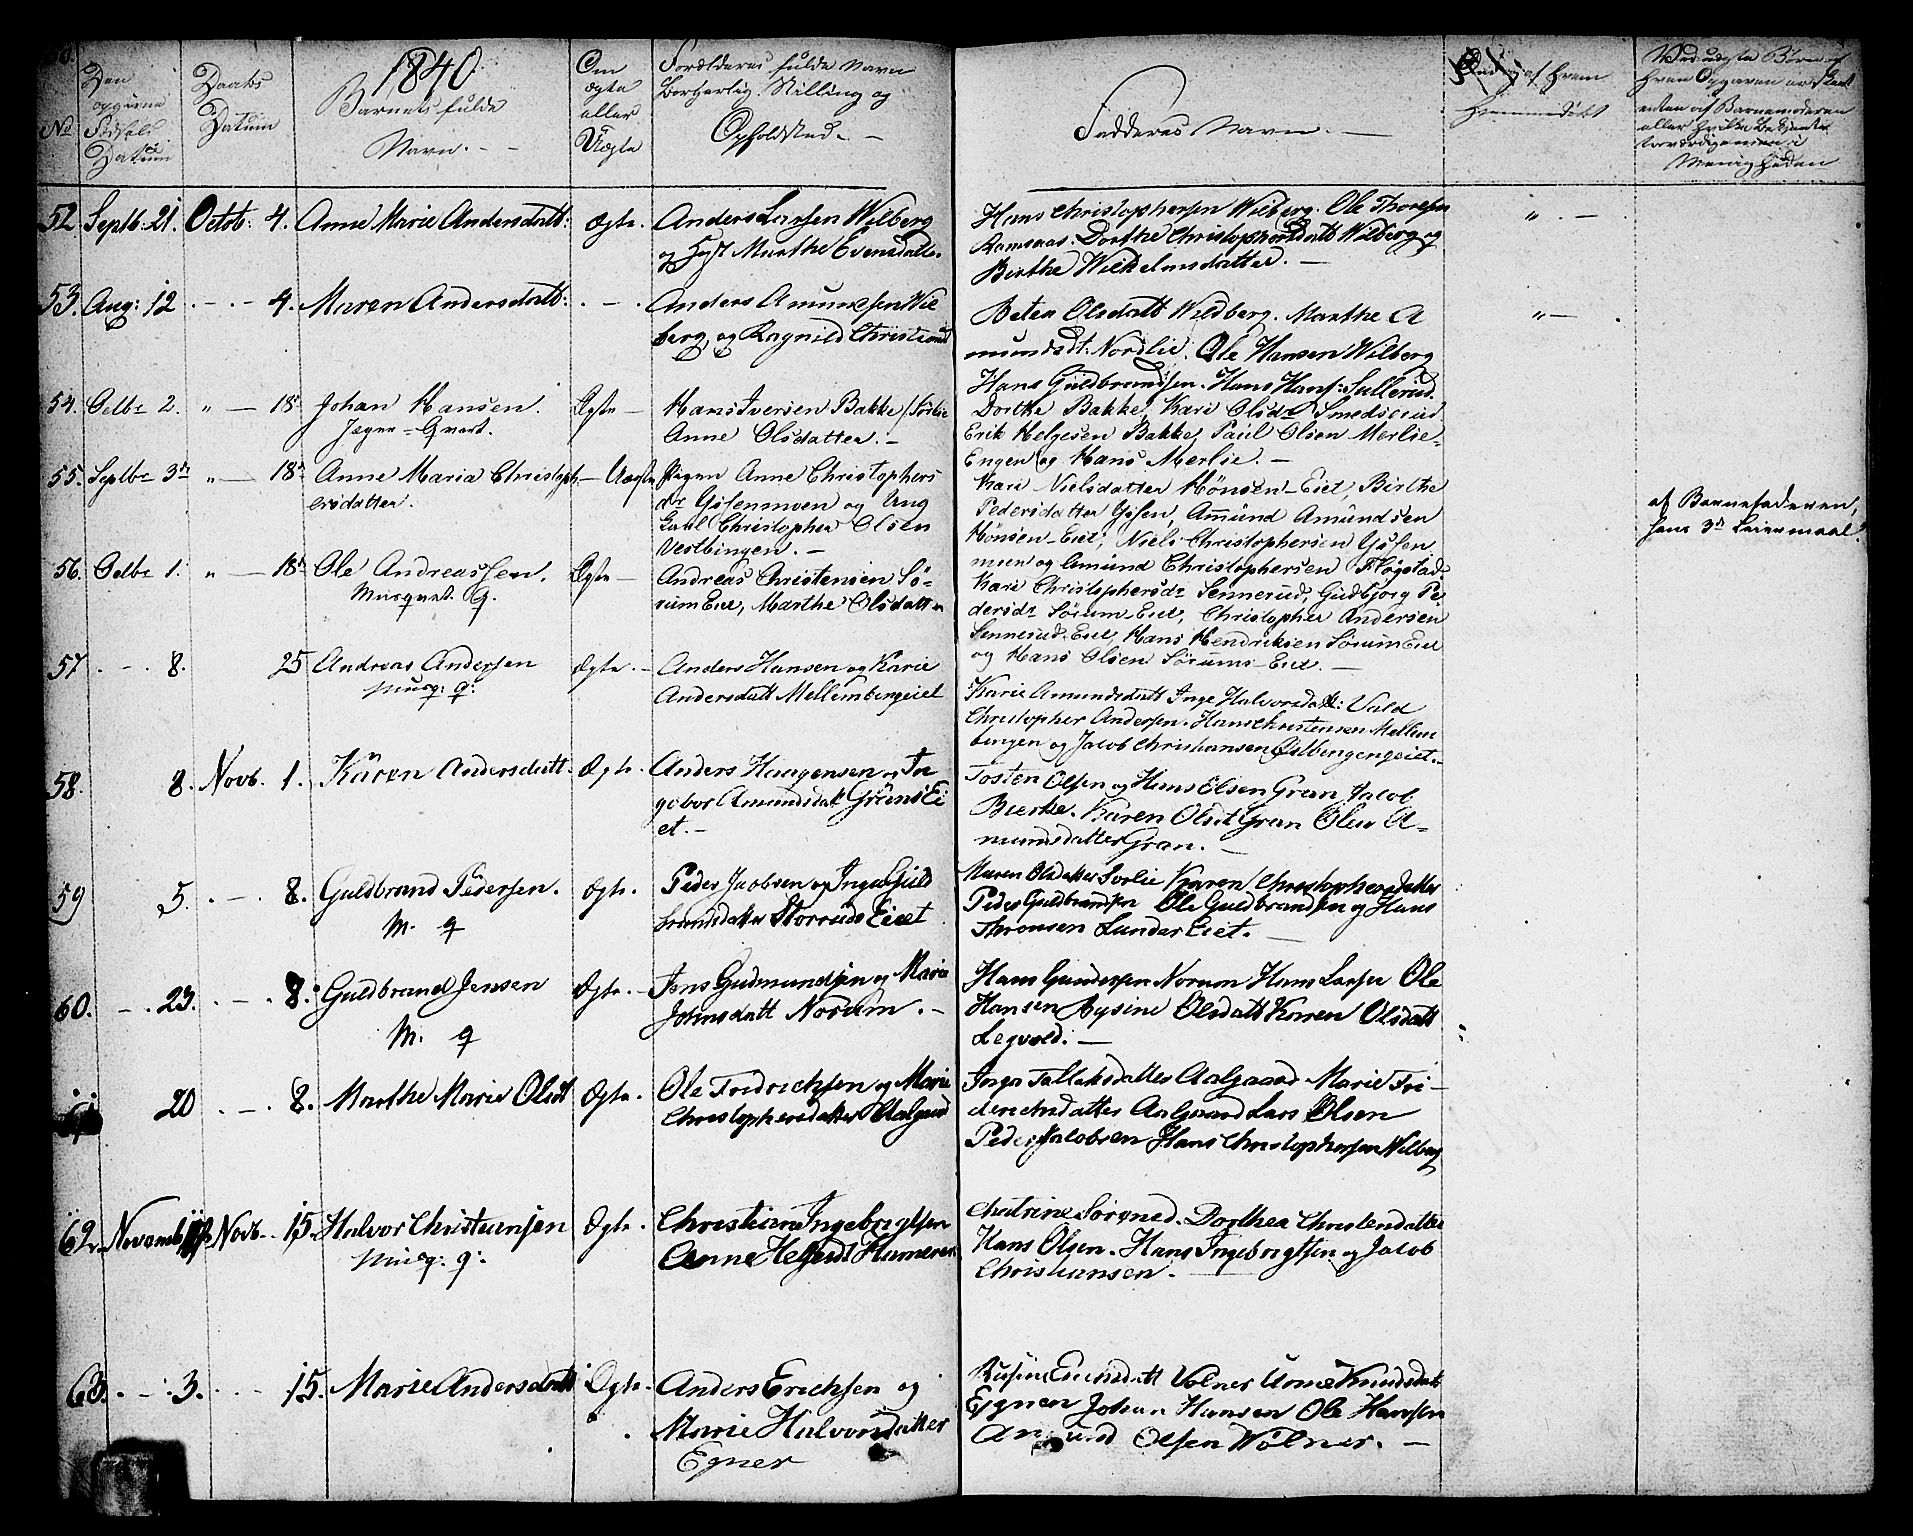 1840
No
Den opgivne Fødsels Datum
Daabs Datum
Barnets fulde Navn.
Om ægte eller Uægte
Forældrenes fulde Navn Borgerlig Stilling og Opholdsted.
Faddernes Navn.
af hvem Hjemmedøbt
52 Septb: 21. Octob: 4. Anne Marie Andersdatt: Ægte. Anders Larsen Wilberg
og Marthe Evensdatter
Hans Christophersen Wilberg. Ole Thoresen
Ramsaas. Dorthe Christophersdatt Wilberg og
Birthe Wilhelmsdatter. —
53. Aug: 12 . - . - 4. Maren Andersdatt: . - . Anders Amundsen Wil
berg, og Ragnild Christians
Olsdatt Wilberg. Marthe A
mundsdt: Nordlie. Ole Hansen Wilberg
54. Octbr 2. " — 18. Johan Hansen. Ægte — Hans Iversen Bakke / Sørlie
Jæger - Qvart. Anne Olsdatter. —
Hans Guldbrandsen. Hans Hans: Sullerud.
Dorthe Bakke, Kari Olsdr Smedsrud
Erik Helgesen Bakke, Paul Olsen Merlie-
Engen og Hans Merlie. —
55. Septbr 3de " — 18. Anne Maria Christoph — Uægte, Pigen Anne Christophers
ersdatter. dr Gjisenmoen og Ung
karl Christopher Olsen
Vestbingen. —
Kari Nielsdatter Hønsen-Eiet, Birthe
Pedersdatter Gisen, Amund Amundsen
Hønsen-Eiet, Niels Christophersen Gisen
moen og Amund Christophersen Fløgstad.
af Barnefaderen,
hans 3de Leiermaal.
56. Octbr 1. " — 18. Ole Andreassen. Ægte — Andreas Christensen Sø-
Musquet. q. rum Eiet, Marthe Olsdatter
Kari Christophersdr Sennerud, Gudbjorg Pe
dersdr Sørum-Eiet, Christopher Andersen
Sennerud-Eiet, Hans Hendriksen Sørum Eiet
og Hans Olsen Sørums-Eiet. —
57 . - . 8. 25. Andreas Andersen Ægte. - Anders Hansen og Karie
Musq: q: Andersdatt Mellembingeiet
Karie Amundsdatt Inge Halvorsdatt: Vald
Christopher Andersen. Hans Christensen Mellem
bingen og Jacob Christiansen Østbingengeiet. -
58. 8. Novb. 1. Karen Andersdatt. Ægte. Anders Haagensen og In
gebor Amundsdatt Gröens Ei
et. -
Tosten Olsen og Hans Olsen Gran Jacob
Bierke. Karen Olsdt Gran Olea A-
mundsdatter Gran. -
59 5. . - . 8. Guldbrand Pedersen. Ægte. Peder Jacobsen og Inger Guld
M. q brandsdatter Storruds Eiet
Maren Olsdatter Sørlie Karen Christophersdatter
Peder Guldbrandsen Ole Guldbrandsen og Hans
Thronsen Lunder Eiet. -
60. . - . 23. . - . 8. Guldbrand Jensen Ægte. - Jens Gudmundsen og Marie
M. q Johnsdatt Norum. -
Hans Gundersen Norum Hans Larsen Ole
Hansen Olsdatt Karen Olsdatt
Legvold. —
61 20 . - . 8. Marthe Marie Olsdt Ægte. Ole Fridrichsen og Marie
Christophersdatter Aalgaard
Inger Tallaksdatter Aalgaard Marie Fri-
derichsdatter Aalgaard Lars Olsen
Peder Jacobsen Hans Christophersen Wilberg
62. Novemb Novb. 15. Halvor Christiansen Ægte. Christian Ingebrigtsen
Musq: q: Anne
Chatrine Sørgned. Dorthea Christensdatter
Hans Olsen. Hans Ingebrigtsen og Jacob
Christiansen. -
63. . - . 3. . - 15. Marie Andersdatt Ægte. Anders Erichsen og
Marie Halvorsdatter
Egner
Evensdatt Volner Anne Knudsdatt
Egnen Johan Hansen Ole Hansen
Amund Olsen Wölner. —